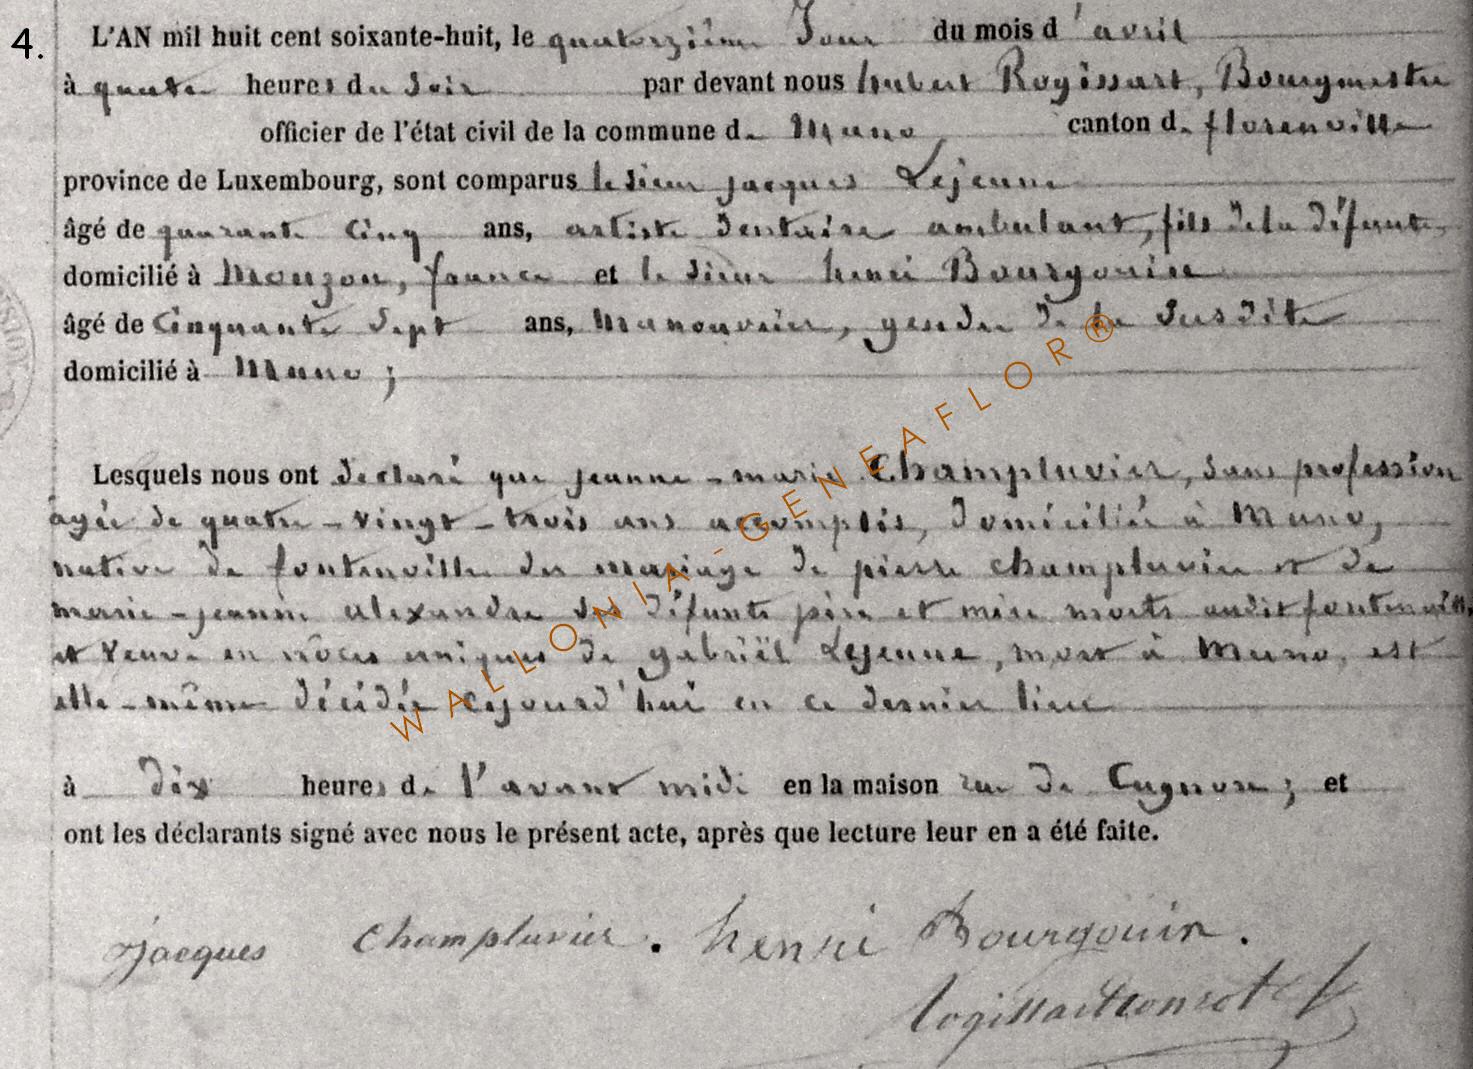 4.
L'AN mil huit cent soixante-huit, le quatorzième Jour du mois d'avril
à quatre heures du Soir par devant nous hubert Rogissart, Bourgmestre
officier de l'état civil de la commune de Muno canton de florenville
province de Luxembourg, sont comparus le sieur jacques Lejeune
âgé de quarante cinq ans, artiste dentaire ambulant, fils de la défunte,
domicilié à Mouzon, france et le sieur henri Bourgouin
âgé de Cinquante Sept ans, Manouvrier, gendre de la Susdite
domicilié à Muno ;
Lesquels nous ont declaré que jeanne-marie Champluvier, sans profession
agée de quatre-vingt-trois ans accomplis, domiciliée à Muno,
native de fontenville du mariage de pierre champluvier et de
marie-jeanne alexandre des défunts père et mère morts audit fontenville
et Veuve en nôces uniques de gabriël Lejeune, mort à Muno, est
elle-même décédée cejourd'hui en ce dernier lieu
à dix heures de l'avant midi en la maison rue de Cugnon ; et
ont les déclarants signé avec nous le présent acte, après que lecture leur en a été faite.
jacques champluvier. henri Bourgouin.
WALLONIA-GENEAFLOR®